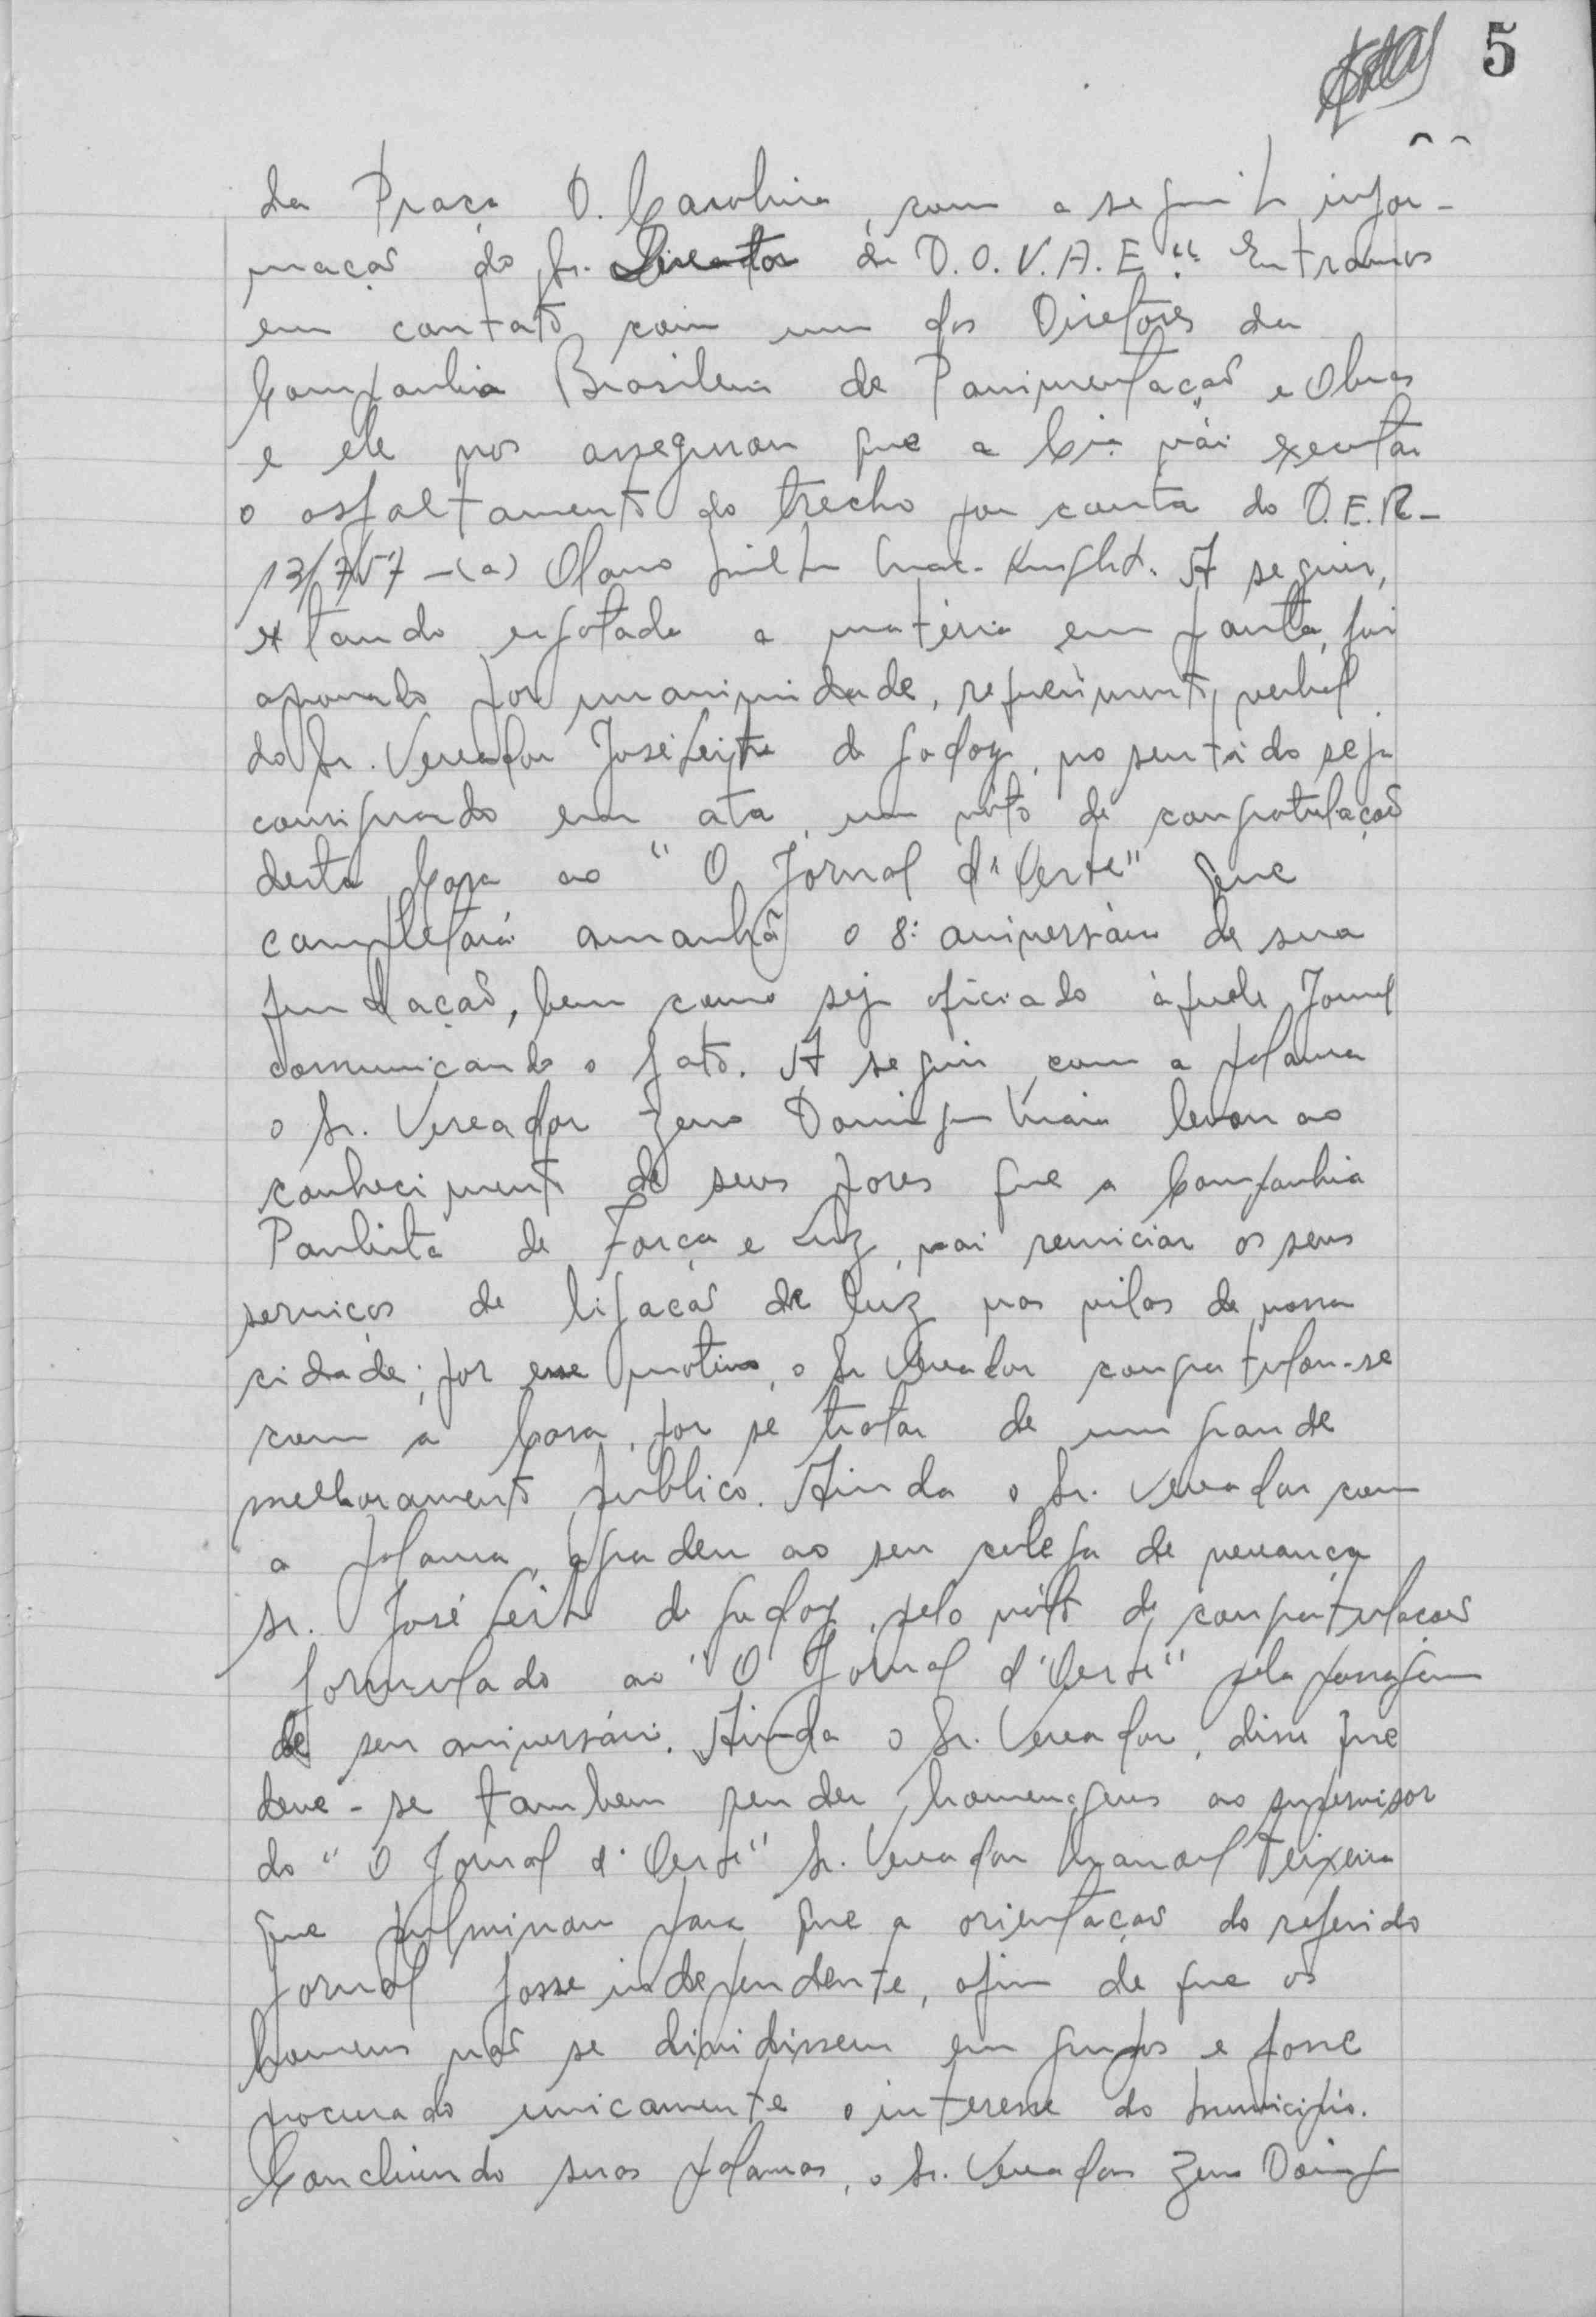 5
da Praça D. Carolina, com a seguinte infor-
mação do Sr. Director da D.O.V.A.E: "Entramos
em contato com um dos Diretores da
Companhia Brasileira de Pavimentação e Obras
e ele nos assegurou que a Cia. vai executar
o asfaltamento do trecho por conta do D.E.R-
13/7/57 -(a) Olavo Mac-Knight. A seguir,
estando esgotada a matéria em pauta, foi
aprovado por unanimidade, requerimento verbal
do Sr. Vereador José Leite de Godoy, no sentido seja
consignado em ata, um vóto de congratulação
desta Casa ao "O Jornal d'Oeste" que
completará amanhã o 8: aniversário de sua
fundação, bem como seja oficiado àquele Jornal
comunicando o fato. A seguir com a palavra
o Sr. Vereador Zeno Domingues Maia levou ao
conhecimento de seus pares que a Companhia
Paulista de Força e Luz, vai reiniciar os seus
serviços de ligação de luz nas vilas de nossa
cidade; por esse motivo, o Sr Vereador congratulou-se
com a Casa, por se tratar de um grande
melhoramento público. Ainda o Sr. Vereador com
a palavra, agradeu ao seu colega de vereança
Sr. José Leite de Godoy, pelo vóto de congratulações
formulado ao "O Jornal d'Oeste" pela passagem
de seu aniversário. Ainda o Sr. Vereador, disse que
deve-se tambem render homenagens ao supervisor
do "O Jornal d'Oeste" Sr. Vereador Manoel Teixeira
que para que a orientação do referido
Jornal fosse independente, afim de que os
homens não se dividissem em grupos e fosse
procurado unicamente o interesse do municipio.
Concluindo suas palavras, o Sr. Vereador Zeno Doming